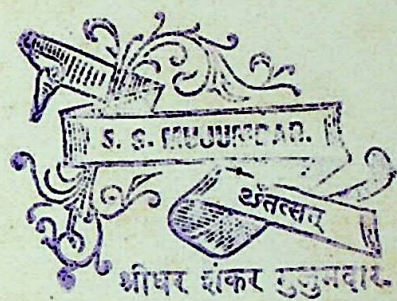 S. S. MUJUMDAR.
ॐतत्सत्
श्रीधर शंकर मुजुमदार.